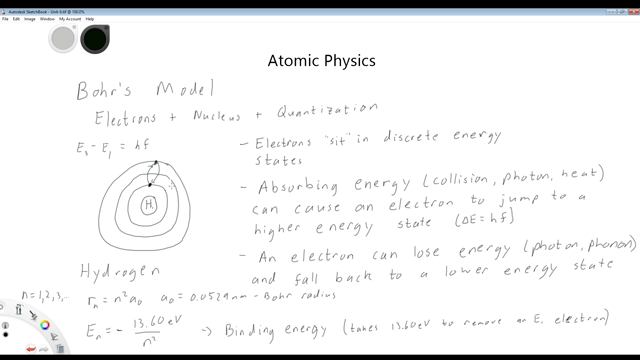 Autodesk SketchBook - Unit 9.tif @ 100.0%
File Edit Image Window My Account Help
Atomic Physics
Bohr's Model
Electrons + Nucleus + Quantization
E₃ - E₁ = hf
H
- Electrons "sit" in discrete energy
states
- Absorbing energy (collision, photon, heat)
can cause an electron to jump to a
higher energy state (ΔE = hf)
- An electron can lose energy (photon, phonon)
and fall back to a lower energy state
Hydrogen
n = 1, 2, 3, ... rₙ = n²a₀ a₀ = 0.0529 nm - Bohr radius
Eₙ = - 13.60 eV / n² → Binding energy (takes 13.60 eV to remove an E₁ electron)